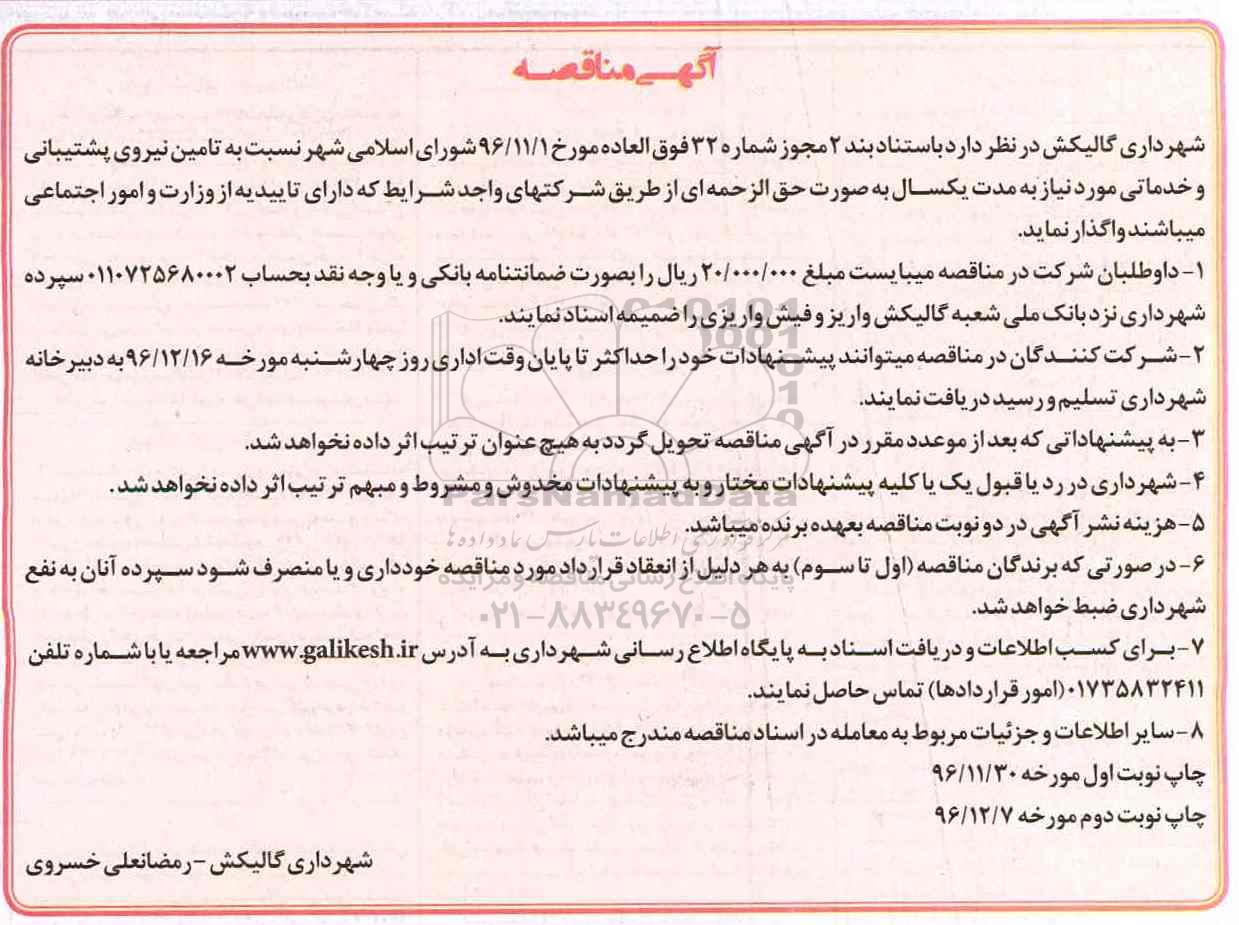 آگهی مناقصه
شهرداری گالیکش در نظر دارد باستناد بند ۲ مجوز شماره ۳۲ فوق العاده مورخ ۹۶/۱۱/۱ شورای اسلامی شهر نسبت به تامین نیروی پشتیبانی
و خدماتی مورد نیاز به مدت یکسال به صورت حق الزحمه ای از طریق شرکتهای واجد شرایط که دارای تاییدیه از وزارت و امور اجتماعی
میباشند واگذار نماید.
۱- داوطلبان شرکت در مناقصه میبایست مبلغ ۲۰/۰۰۰/۰۰۰ ریال را بصورت ضمانتنامه بانکی و یا وجه نقد بحساب ۰۱۱۰۷۲۵۶۸۰۰۰۲ سپرده
شهرداری نزد بانک ملی شعبه گالیکش واریز و فیش واریزی را ضمیمه اسناد نمایند.
۲- شرکت کنندگان در مناقصه میتوانند پیشنهادات خود را حداکثر تا پایان وقت اداری روز چهارشنبه مورخه ۹۶/۱۲/۱۶ به دبیرخانه
شهرداری تسلیم و رسید دریافت نمایند.
۳- به پیشنهاداتی که بعد از موعدد مقرر در آگهی مناقصه تحویل گردد به هیچ عنوان ترتیب اثر داده نخواهد شد.
۴- شهرداری در رد یا قبول یک یا کلیه پیشنهادات مختار و به پیشنهادات مخدوش و مشروط و مبهم ترتیب اثر داده نخواهد شد.
ParsNamadData
۵- هزینه نشر آگهی در دو نوبت مناقصه بعهده برنده میباشد.
مرکز فرآوری اطلاعات پارس نماد داده ها
۶- در صورتی که برندگان مناقصه (اول تا سوم) به هر دلیل از انعقاد قرارداد مورد مناقصه خودداری و یا منصرف شود سپرده آنان به نفع
پایگاه اطلاع رسانی مناقصه و مزایده
شهرداری ضبط خواهد شد.
۰۲۱-۸۸۳۴۹۶۷۰-۵
۷- برای کسب اطلاعات و دریافت اسناد به پایگاه اطلاع رسانی شهرداری به آدرس www.galikesh.ir مراجعه یا با شماره تلفن
۰۱۷۳۵۸۳۲۴۱۱ (امور قراردادها) تماس حاصل نمایند.
۸- سایر اطلاعات و جزئیات مربوط به معامله در اسناد مناقصه مندرج میباشد.
چاپ نوبت اول مورخه ۹۶/۱۱/۳۰
چاپ نوبت دوم مورخه ۹۶/۱۲/۷
شهرداری گالیکش - رمضانعلی خسروی